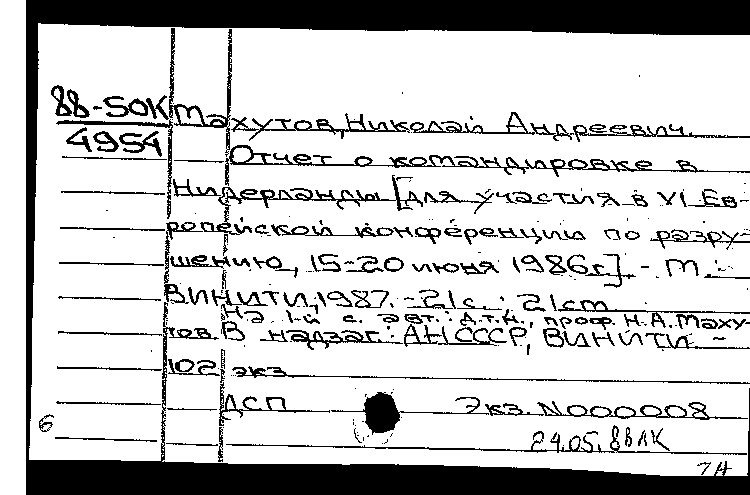 88-50К Махутов, Николай Андреевич.
4954 Отчет о командировке в
Нидерланды [для участия в VI Ев-
ропейской конференции по разру-
шению, 15-20 июня 1986г.]. - М.:
ВИНИТИ, 1987. - 21с.; 21cm
На 1-й с. авт.: д.т.н., проф. Н.А.Маху-
тов. В надзаг.: АН СССР, ВИНИТИ. -
102 экз.
ДСП Экз. N000008
6 24.05.88
7А